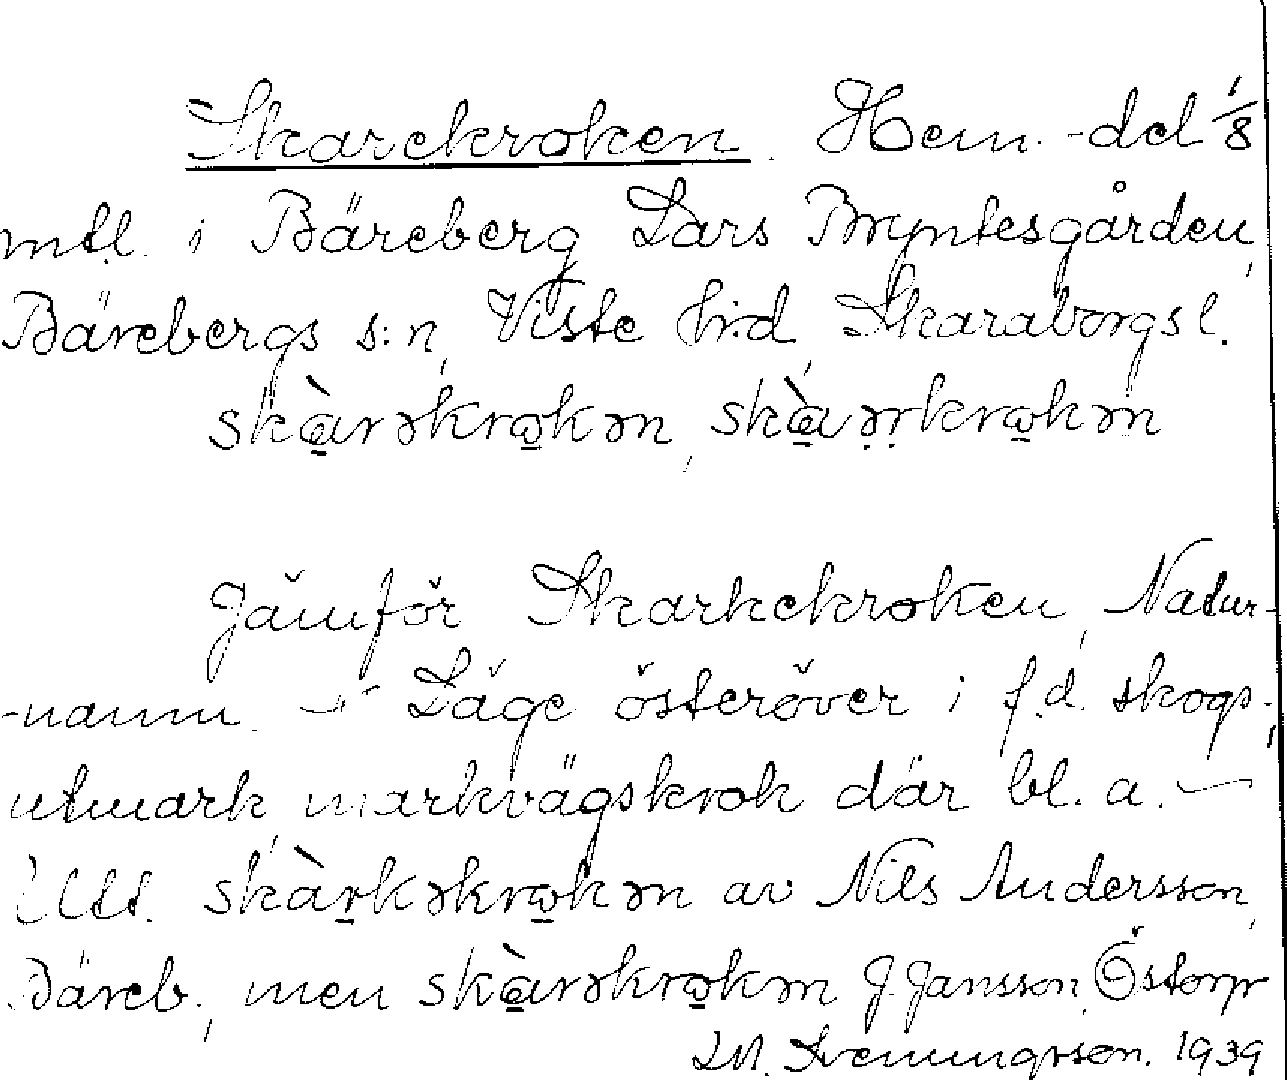 Skarekroken. Hem.-del 1/8
mtl. i Bäreberg Lars Bryntesgården,
Bärebergs s:n, Viste hrd, Skaraborgs l.
skàrəkrokən, skàrərkrokən
Jämför Skarkekroken, Natur-
-namn - Läge österöver i f.d. skogs-
utmark, markvägskrok där bl. a. —
Utt. skàrkəkrokən av Nils Andersson,
Bäreb., men skàrəkrokən J. Jansson, Östorp
1939